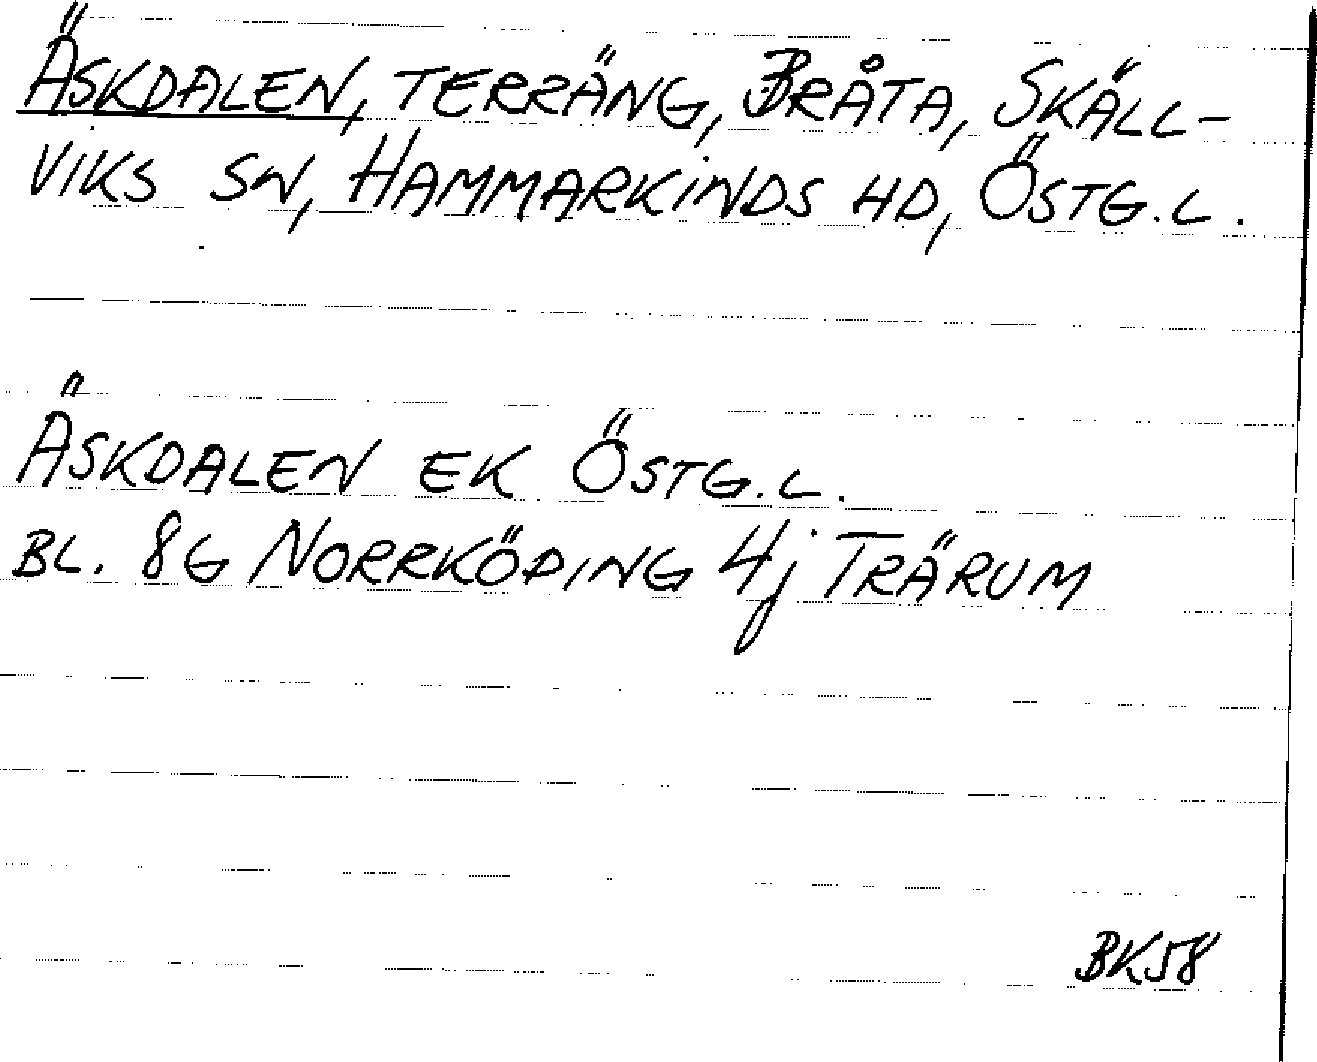 ÄSKDALEN, TERRÄNG, BRÅTA, SKÄLL-
VIKS SN, HAMMARKINDS HD, ÖSTG.L.
ÄSKDALEN EK ÖSTG.L.
BL. 8G NORRKÖPING 4j TRÄRUM
BK58